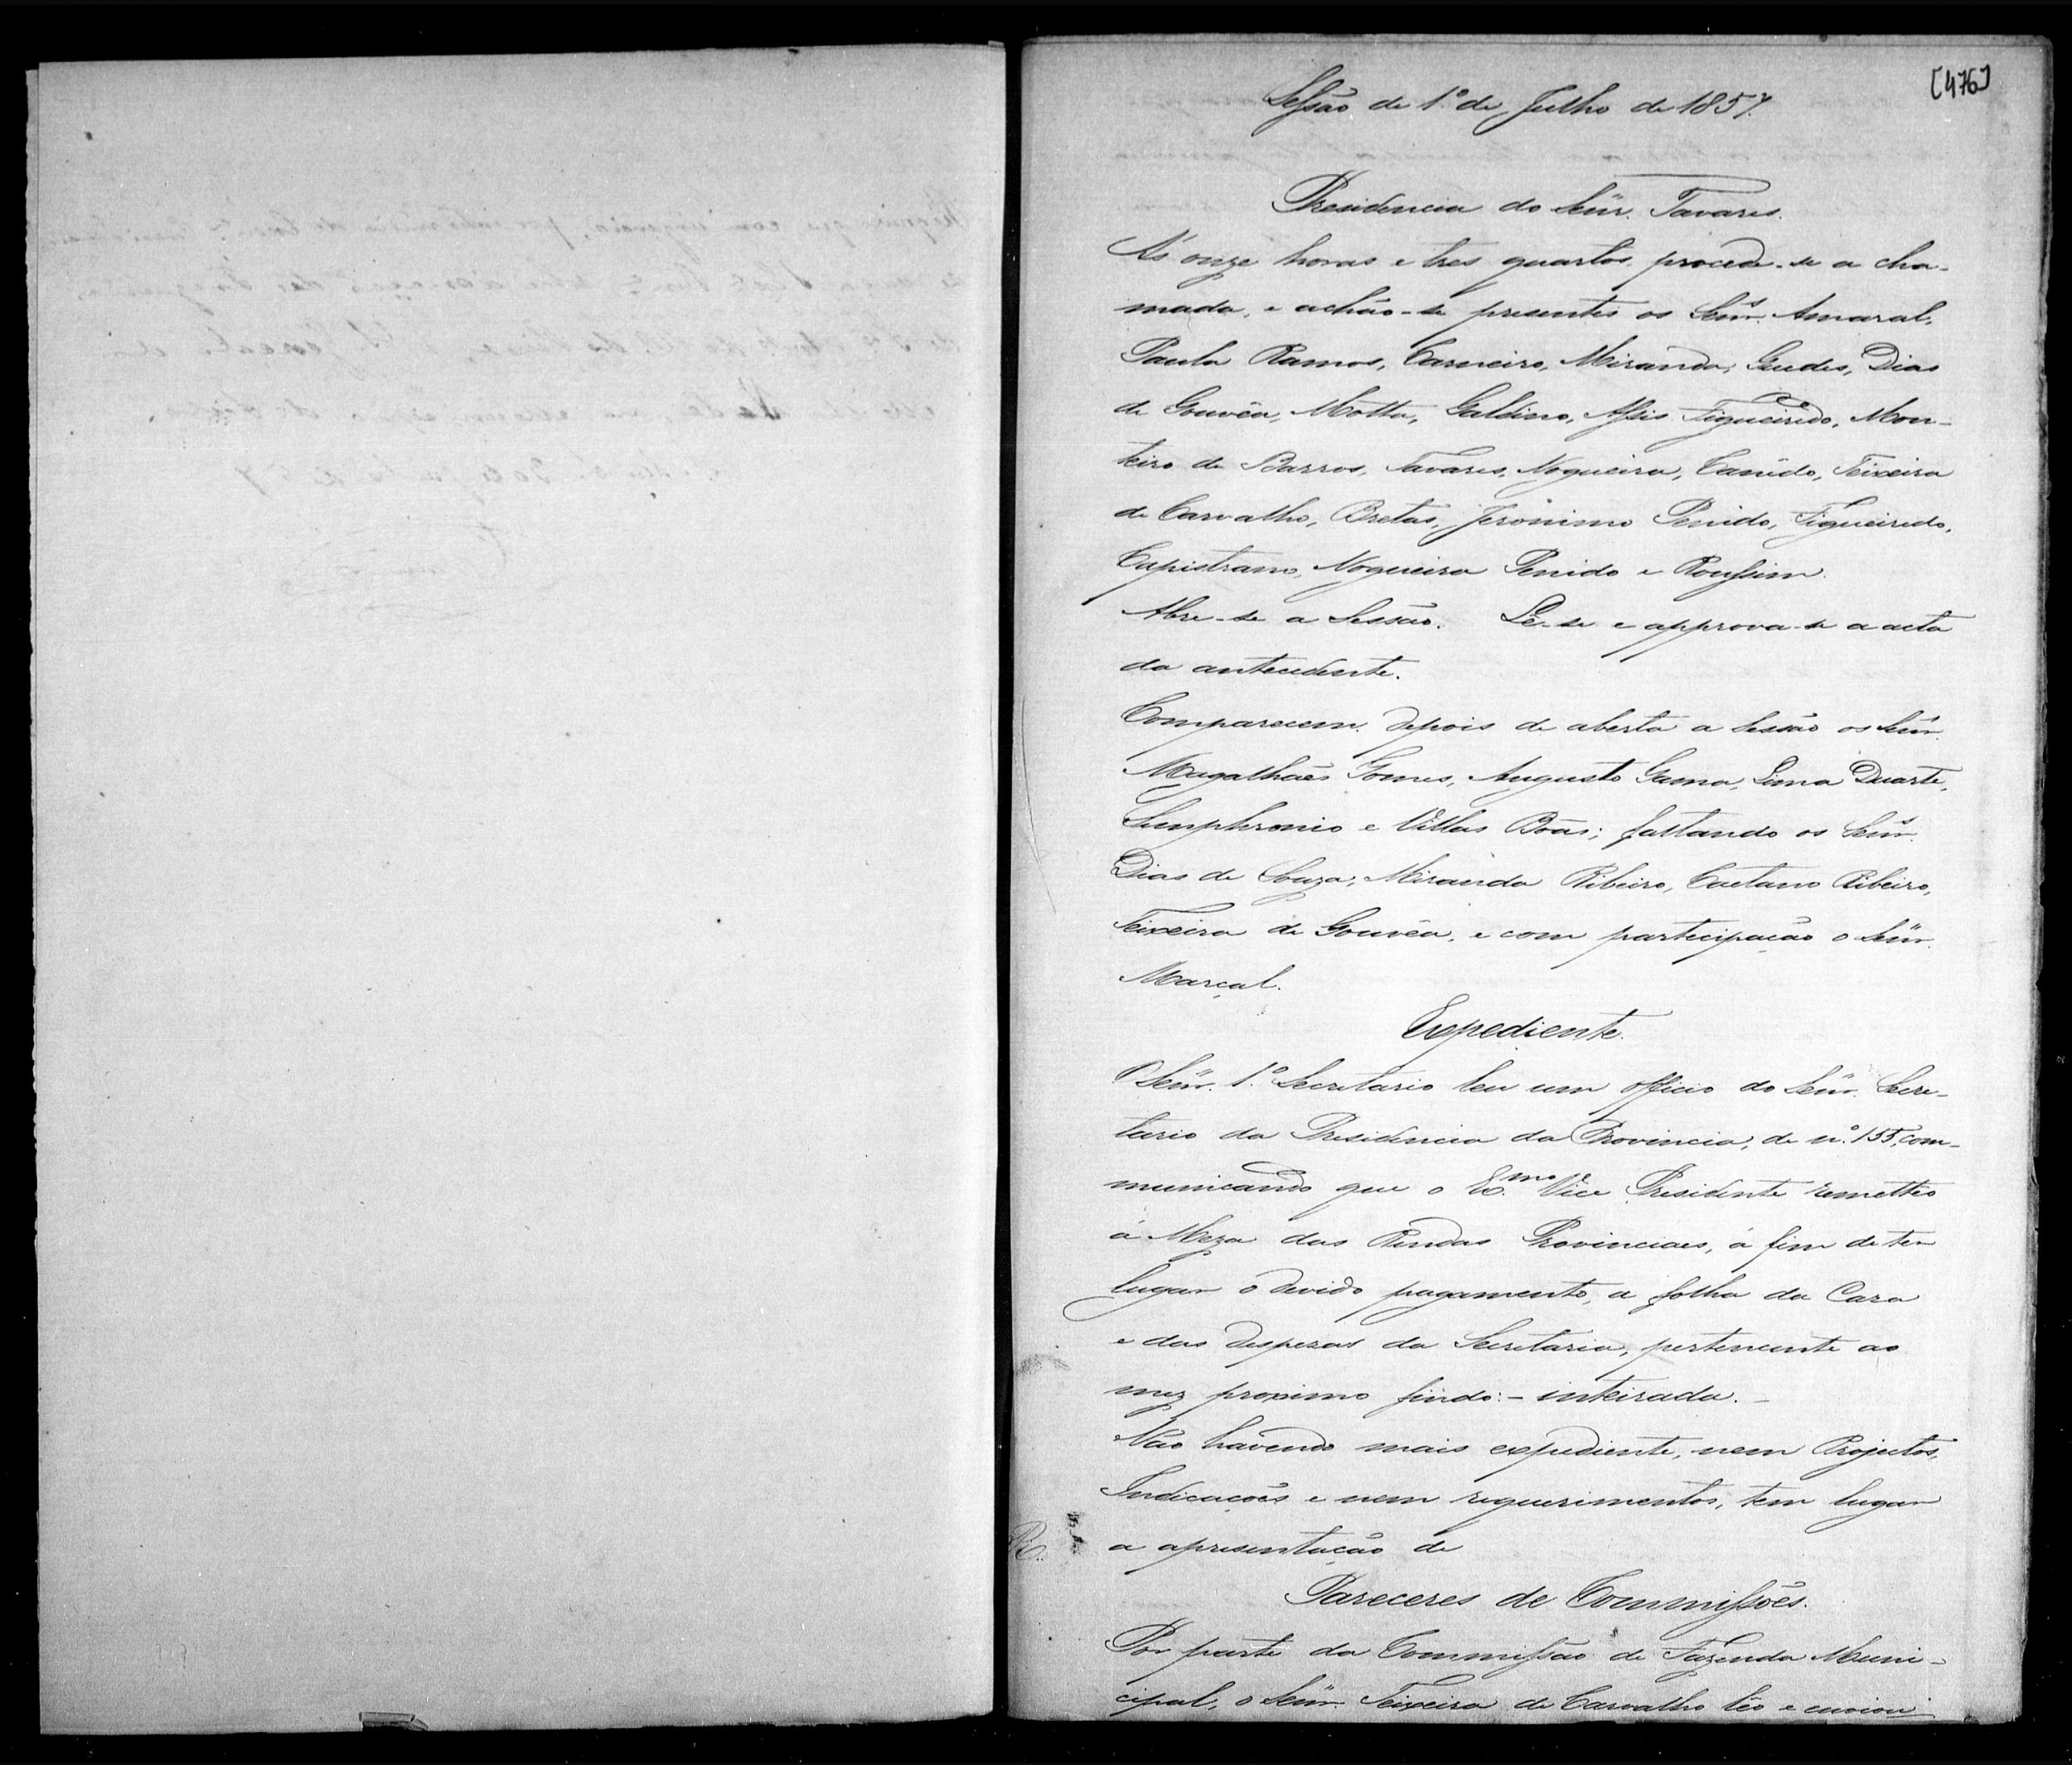 [476]
Sessão de 1.º de Julho de 1857.
Presidencia do Senr. Tavares.
Ás onze horas e tres quartos procede-se a cha-
mada, e achão-se presentes os Senrs. Amaral,
Paula Ramos, Carneiro, Miranda, Guedes, Dias
de Gouvêa, Motta, Galdino, Assis Figueiredo, Mon-
teiro de Barros, Tavares, Nogueira, Canêdo, Teixeira
de Carvalho, Bretas, Jeronimo Penido, Figueiredo,
Capistrano, Nogueira Penido e Roussim.
Abre-se a Sessão. Lê-se e approva-se a acta
da antecedente.
Comparecem depois de aberta a Sessão os Senrs.
Magalhães Gomes, Augusto Gama, Lima Duarte,
Simphronio e Villas Bôas; faltando os Senrs.
Dias de Souza, Miranda Ribeiro, Caetano Ribeiro,
Teixeira de Gouvêa, e com participação o Senr.
Marçal.
Expediente.
O Senr. 1.º Secretario leu um officio do Senr. Secre-
tario da Presidencia da Provincia, de n.º 155, com-
municando que o Ex.mo Vice Presidente remetteo
á Meza das Rendas Provinciaes, a fim de ter
lugar o devido pagamento, a folha da Caza
e das despezas da Secretaria, pertencente ao
mez proximo findo: - inteirada. -
Não havendo mais expediente, nem Projectos,
Indicações e nem requerimentos, tem lugar
a apresentação de
Pareceres de Commissões.
Por parte da Commissão de Fazenda Muni-
cipal, o Senr. Teixeira de Carvalho lêo e enviou